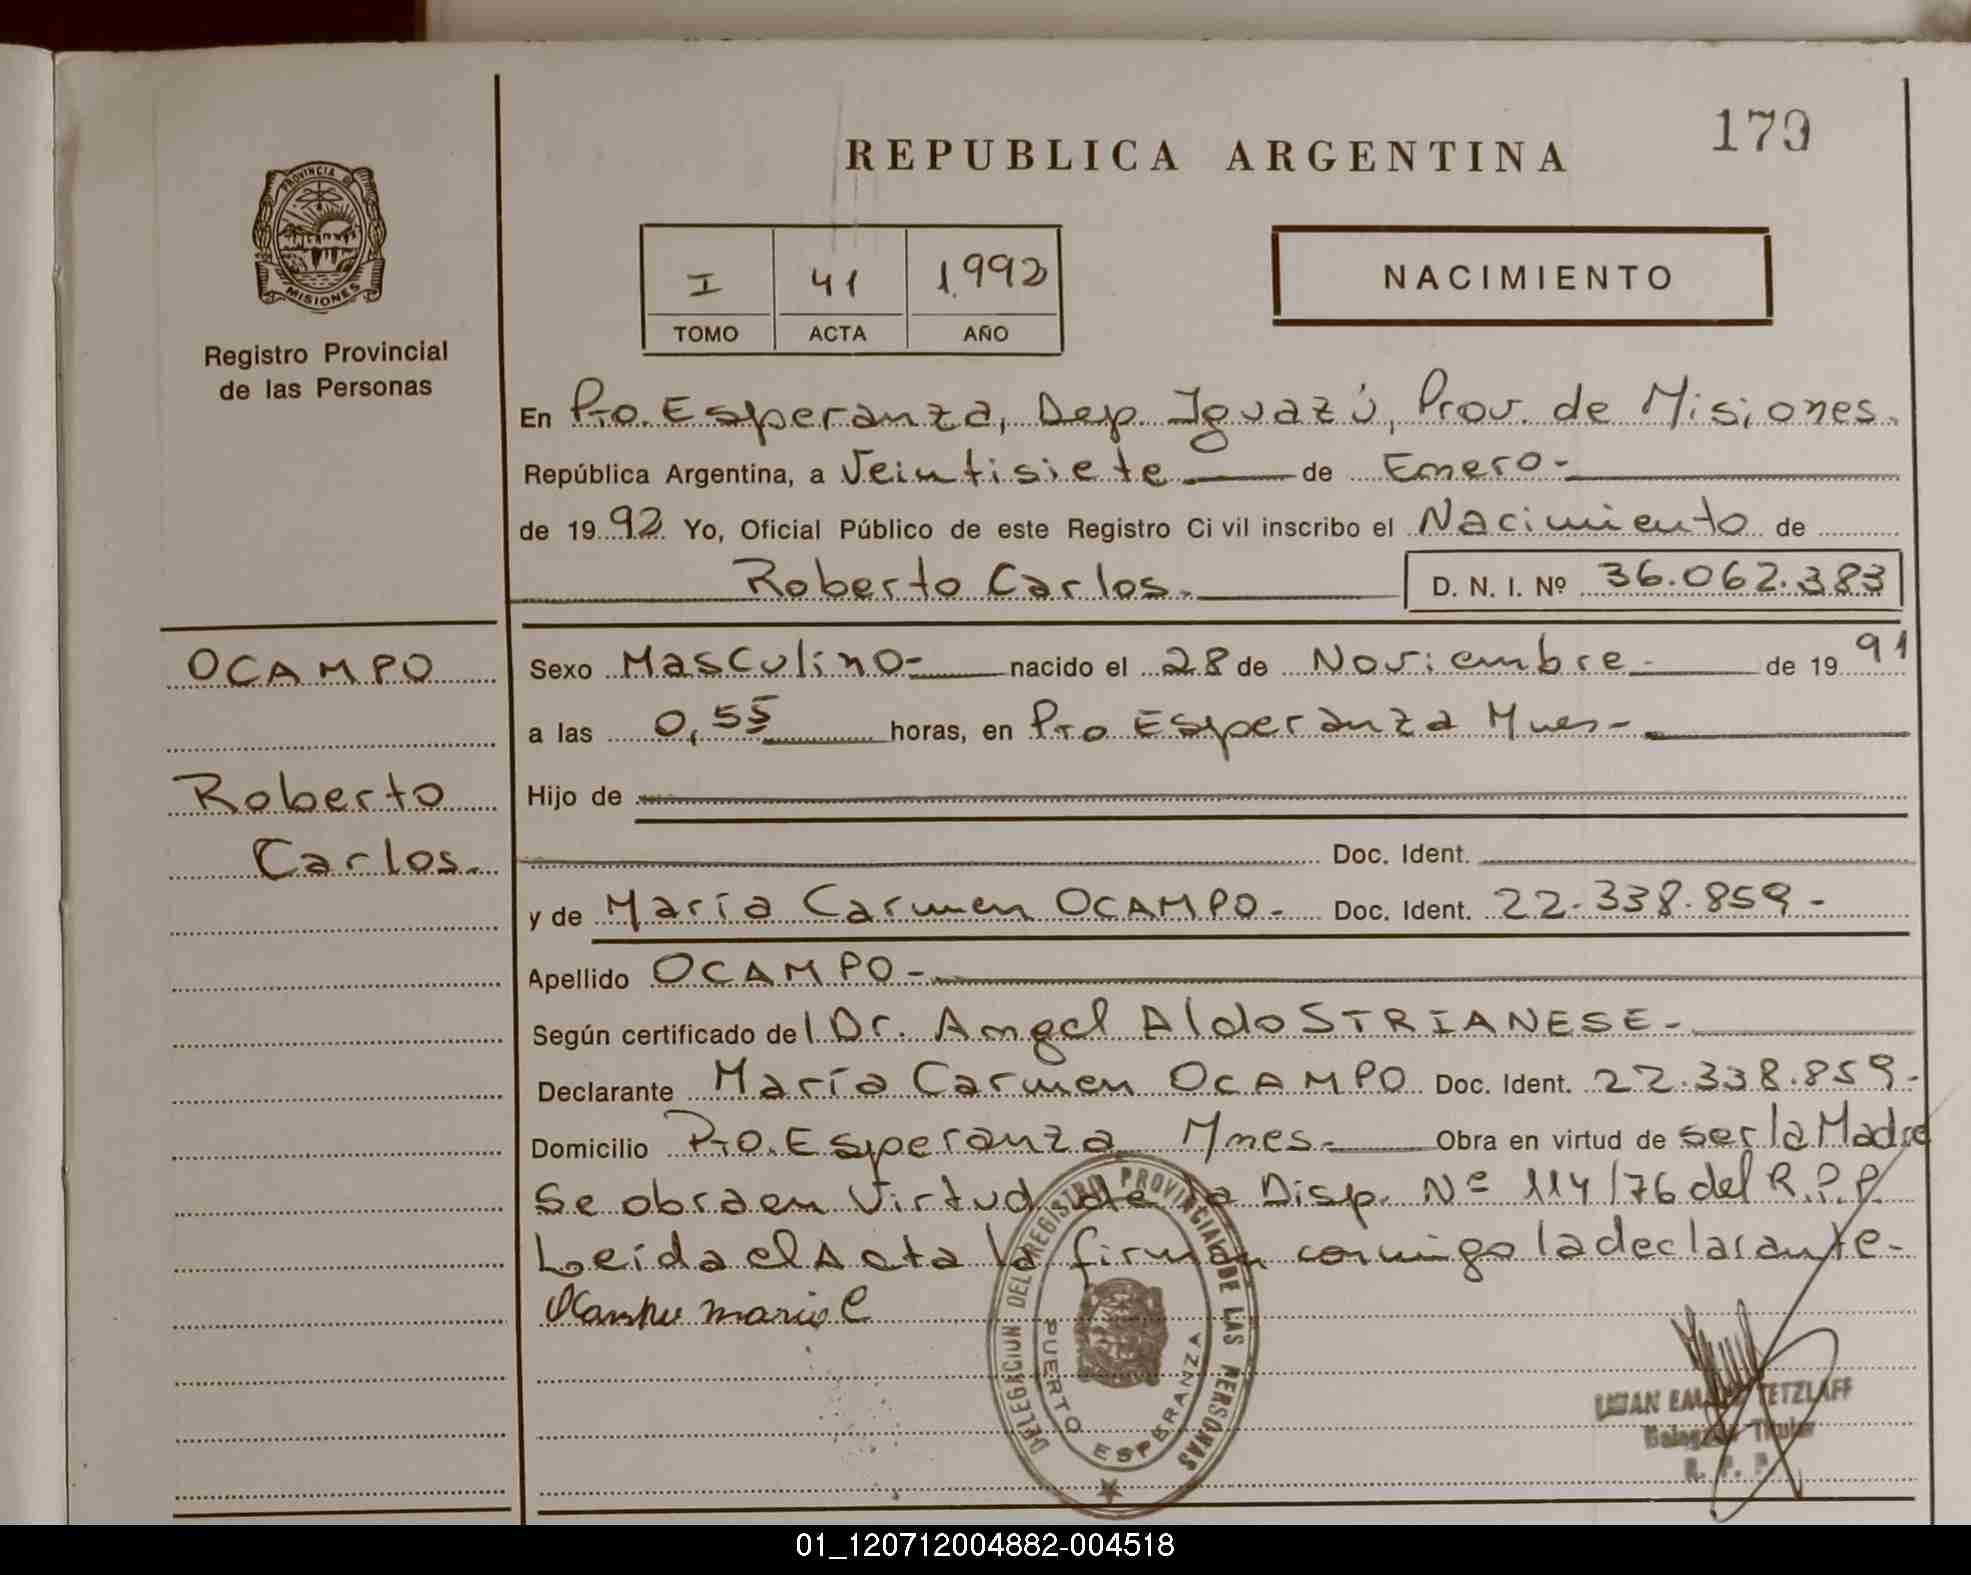 REPUBLICA ARGENTINA
179
PROVINCIA DE
MISIONES
Registro Provincial
de las Personas
I 41 1.992
TOMO ACTA AÑO
NACIMIENTO
En Pto. Esperanza, Dep. Iguazú, Prov. de Misiones.
República Argentina, a Veintisiete de Enero-
de 19 92 Yo, Oficial Público de este Registro Civil inscribo el Nacimiento de
Roberto Carlos. D. N. I. Nº 36.062.383
OCAMPO
Roberto
Carlos.
Sexo Masculino- nacido el 28 de Noviembre- de 19 91
a las 0,55 horas, en Pto Esperanza Mnes-
Hijo de
Doc. Ident.
y de María Carmen OCAMPO- Doc. Ident. 22.338.859-
Apellido OCAMPO-
Según certificado del Dr. Angel Aldo STRIANESE-
Declarante María Carmen OCAMPO Doc. Ident. 22.338.859-
Domicilio Pto. Esperanza Mnes- Obra en virtud de ser la Madre
Se obra en Virtud de la Disp. Nº 114/76 del R.P.P.
Leída el Acta la firman conmigo la declarante-
Ocampo maria C
DELEGACION DEL REGISTRO PROVINCIAL DE LAS PERSONAS
PUERTO ESPERANZA
TETZLAFF
Titular
R. P. P.
01_120712004882-004518